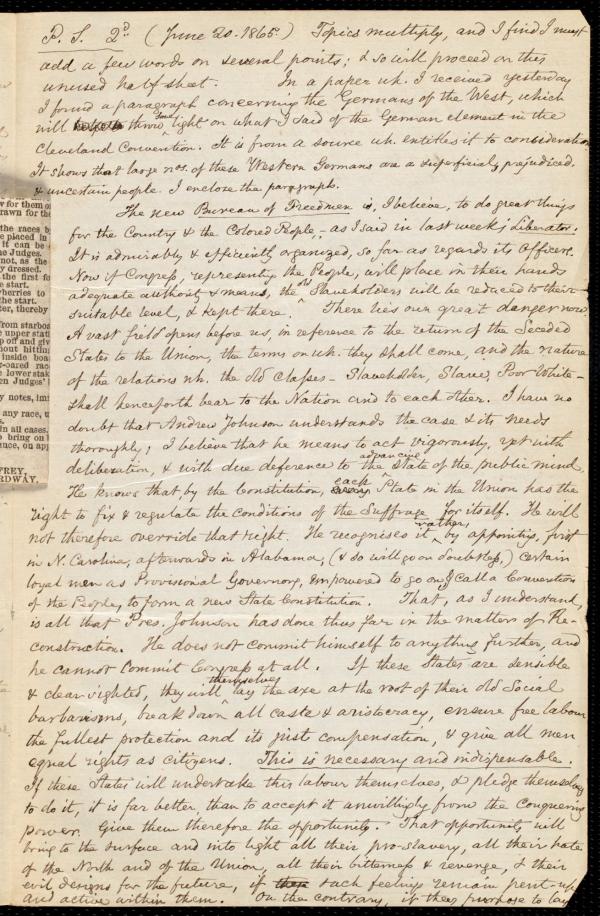 P. S. 2d (June 20. 1865.) Topics multiply, and I find I must
add a few words on several points; & so will proceed on this
unused half sheet. In a paper wh. I received yesterday
I found a paragraph concerning the Germans of the West, which
will throw some light on what I said of the German element in the
Cleveland Convention. It is from a source wh. entitles it to consideration.
It shows that large nos. of these Western Germans are a superficial, prejudiced,
& uncertain people. I enclose the paragraph.
The new Bureau of Freedmen is, I believe, to do great things
for the Country & the Colored People,– as I said in last week's Liberator.
It is admirably & efficiently organized, so far as regards its Officers.
Now if Congress, representing the People, will place in their hands
adequate authority & means, the old Slaveholders will be reduced to their
suitable level, & kept there. There lies our great danger now.
A vast field opens before us, in reference to the return of the Seceded
States to the Union, the terms on wh. they shall come, and the nature
of the relations wh. the old classes – Slaveholder, Slave, Poor White –
shall henceforth bear to the Nation and to each other. I have no
doubt that Andrew Johnson understands the case & its needs
thoroughly; I believe that he means to act vigorously, yet with
deliberation, & with due deference to the advancing state of the public mind.
He knows that by the Constitution, each State in the Union has the
right to fix & regulate the conditions of the Suffrage for itself. He will
not therefore override that right. He recognises it rather, by appointing, first
in N. Carolina, afterwards in Alabama, (& so will go on doubtless,) certain
loyal men as Provisional Governors, empowered to go on & call a Convention
of the People, to form a new State Constitution. That, as I understand,
is all that Pres. Johnson has done thus far in the matter of Re-
construction. He does not commit himself to anything further, and
he cannot commit Congress at all. If these States are sensible
& clear-sighted, they will themselves lay the axe at the root of their old Social
barbarisms, break down all caste & aristocracy, ensure free labour
the fullest protection and its just compensation, & give all men
equal rights as citizens. This is necessary and indispensable.
If these States will undertake this labour themselves, & pledge themselves
to do it, it is far better than to accept it unwillingly from the Conquering
power. Give them therefore the opportunity. That opportunity will
bring to the surface and into light all their pro-slavery, all their hate
of the North and of the Union, all their bitterness & revenge, & their
evil designs for the future, if such feelings remain pent-up
and active within them. On the contrary, if they purpose to lay
w for them o
rawn for the
the races b
e placed in
it can be
e Judges.
not, as the
y dressed.
the first fo
e start.
wherries to
the start.
ter, thereby
from starboa
e upper stat
p off and giv
hout hitting
inside boa
x-oared rac
e lower stak
en Judges'
y notes, im
any race, u
n all cases.
bring on
nce, on ap
FREY,
RDWAY.